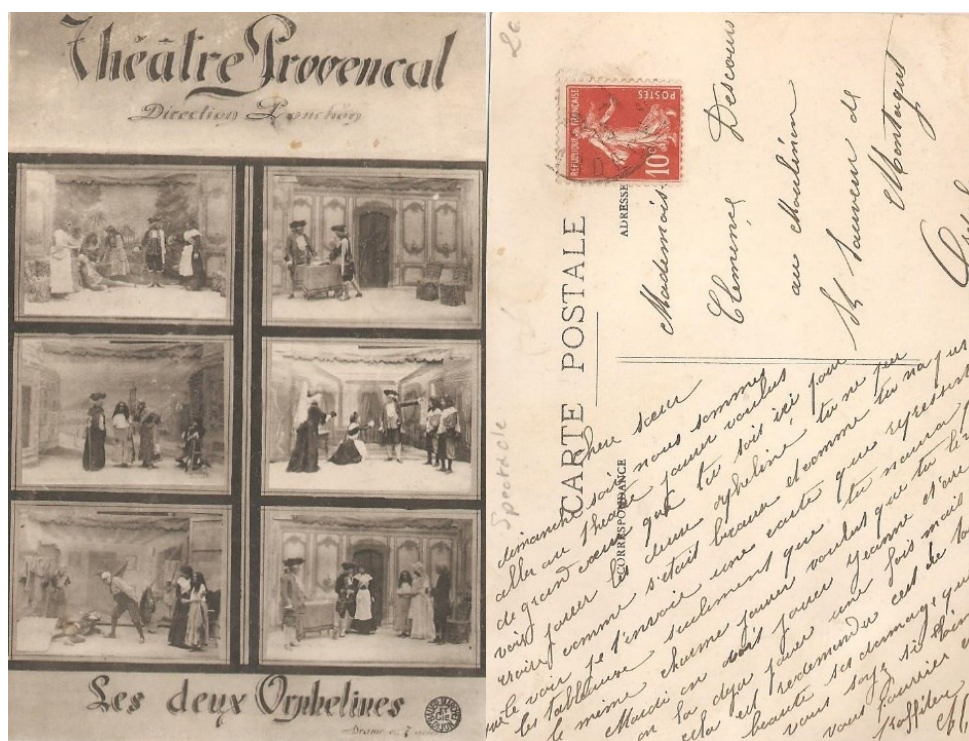 Théâtre Provencal
Direction Ponchon
Les deux Orphelines
Drame en 7
Spectacle
CARTE POSTALE
CORRESPONDANCE
ADRESSE
REPUBLIQUE FRANÇAISE
POSTES
10c
Mademois
Clemence Descours
au Moulinon
St Sauveur de
Montagut
chere sœur
dimanche soir nous sommes
aller au théatre j'aurer voulus
de grand cœur que tu soit ici pour
voir jouer les deux orpheline tu ne peu
croire comme s'était beaux et comme tu na pus
le voir je t'envoir une carte que represent
les tableaux seulement que tu naura
le même charme j'aurer voulus que tu
Mardi on vais jouer Jeanne
on la dejà jouer une fois mais
cela est redemander cest de
beauté ses damage que
vous soyz si loin
vous